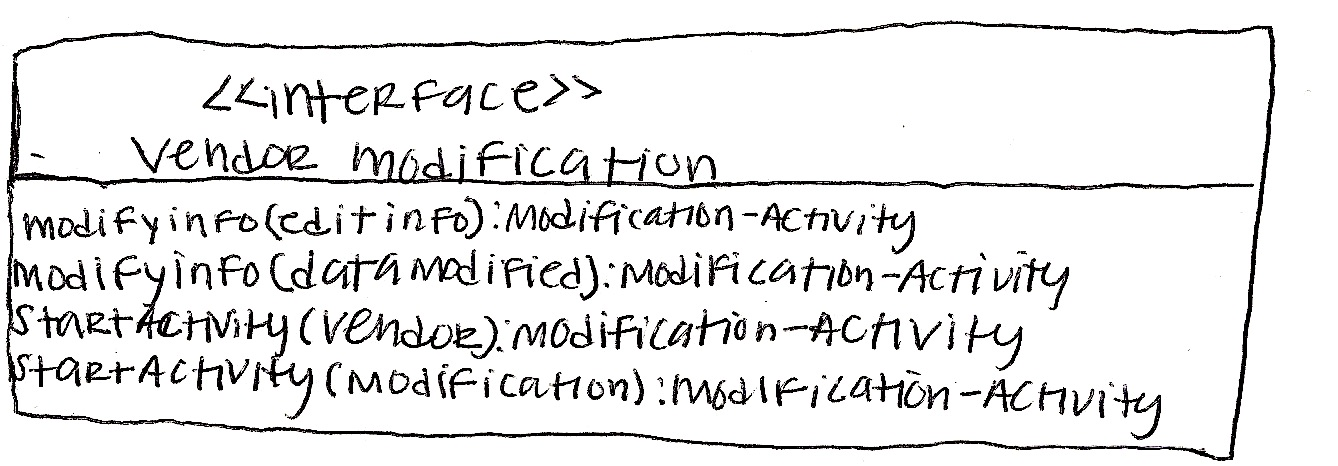 <<interface>>
vendor modification
modifyinfo(editinfo):Modification-Activity
modifyinfo(datamodified):Modification-Activity
StartActivity(vendor):modification-Activity
StartActivity(modification):modification-Activity